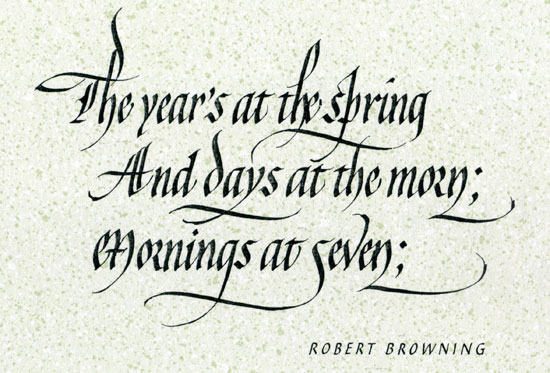 The year's at the spring
And days at the morn;
Mornings at seven;
ROBERT BROWNING